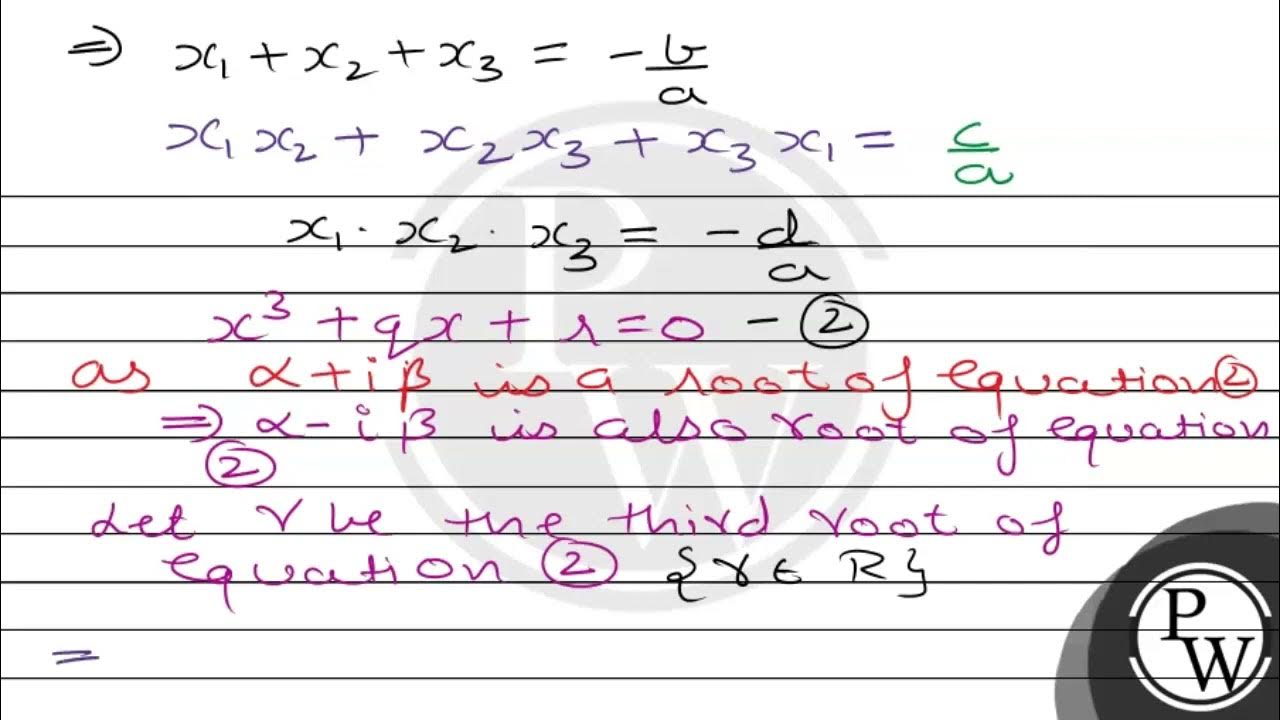 ⇒ x₁ + x₂ + x₃ = -b/a
x₁x₂ + x₂x₃ + x₃x₁ = c/a
x₁·x₂·x₃ = -d/a
x³ + qx + r = 0 - ②
as α+iβ is a root of equation②
⇒ α-iβ is also root of equation
②
Let γ be the third root of
equation ② {γ ∈ R}
=
P
W
P
W